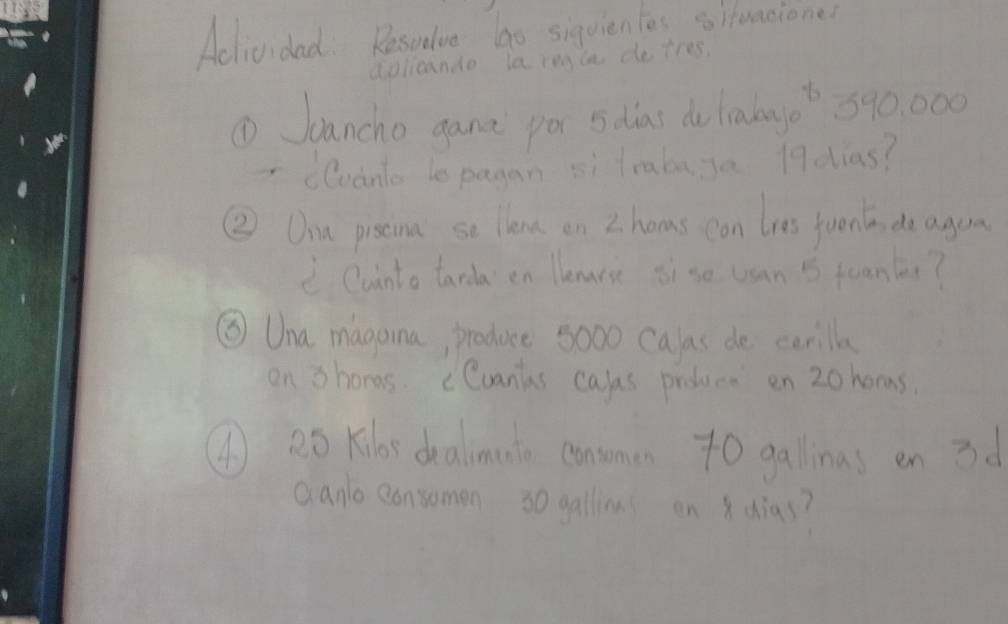 Actividad: Resuelve las siguientes situaciones
aplicando la regla de tres.
① Joancho gana por 5 dias de trabajo $ 390.000
¿Cuánto le pagan si trabaja 19 dias?
② Una piscina se llena en 2 horas con tres fuente de agua
¿ Cuánto tarda en llenarse si se usan 5 fuentes?
③ Una máquina, produce 5000 Cajas de cerilla
en 3 horas. ¿Cuantas cajas produce en 20 horas.
④ 25 Kilos de alimento consumen 70 gallinas en 3 d
Cuanto consumen 30 gallinas en 8 dias?